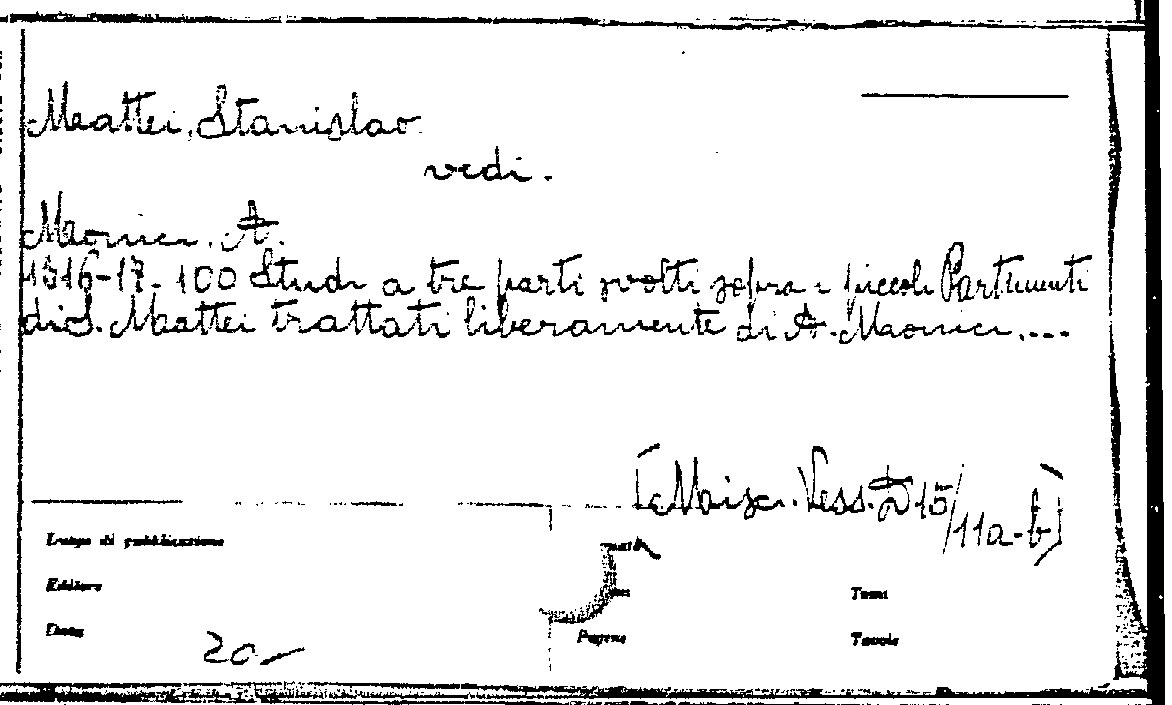 Mattei, Stanislao
vedi.
Maonici. A.
1916-17. 100 Studi a tre parti svolti sopra i piccoli Partimenti
di S. Mattei trattati liberamente di A. Maonici....
[Miscr. Vess. D 15/11a-b]
Luogo di pubblicazione
Editore
Tomi
Data 20
Pagine
Tavole